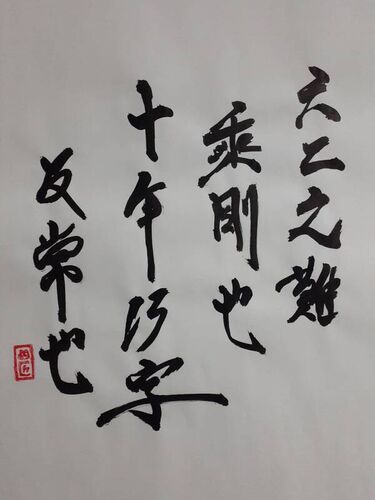 六二之難
乘剛也
十年乃字
反常也